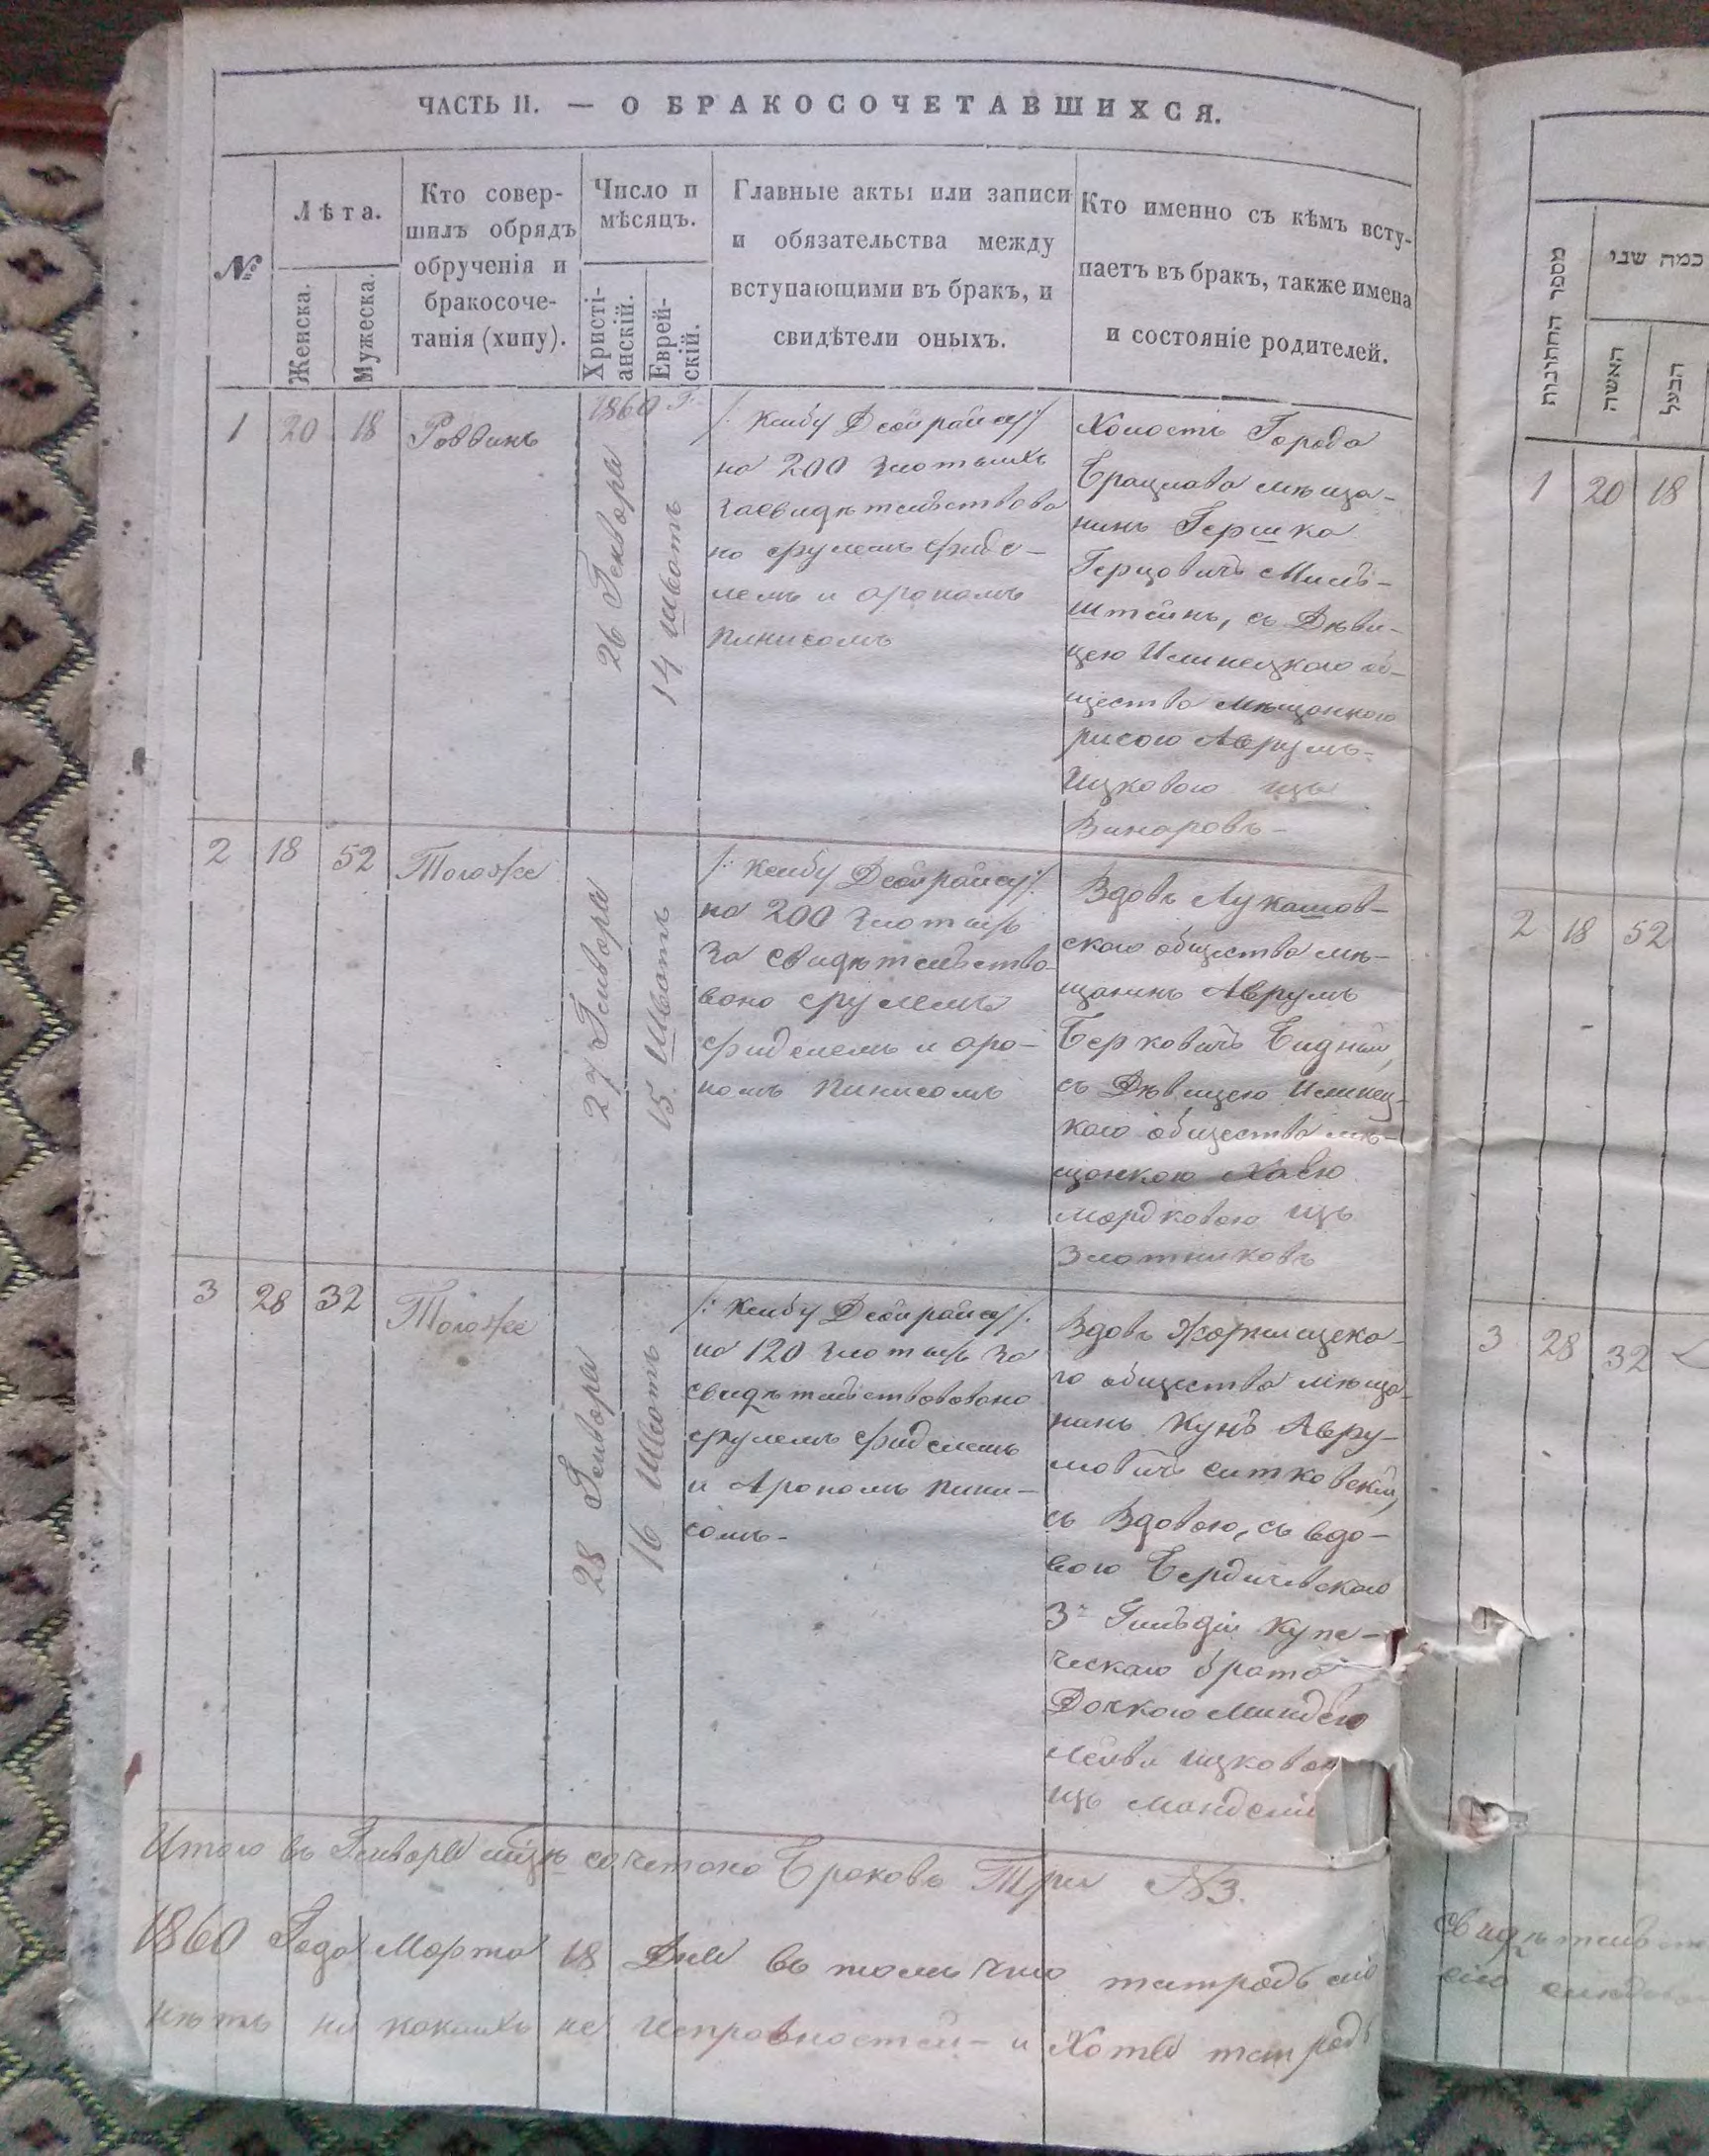 ЧАСТЬ II. — О БРАКОСОЧЕТАВШИХСЯ.
№
Лѣта.
Женска.
Мужеска.
Кто совер-
шилъ обрядъ
обрученія и
бракосоче-
танія (хипу).
Число и
мѣсяцъ.
Христі-
анскій.
Еврей-
скій.
Главные акты или записи
и обязательства между
вступающими въ бракъ, и
свидѣтели оныхъ.
Кто именно съ кѣмъ всту-
паетъ въ бракъ, также имена
и состояніе родителей.
1
20
18
Роввинъ
1860 Г
26 Генвора
14 шватъ
на 200 злотыхъ
засвидѣтельствова
но срулемъ фиде-
лемъ и арономъ
пинисомъ
Холостъ Города
Брацлава мѣща-
нинъ Гершко
Герцовичъ Миль-
штейнъ, съ Дѣви-
цею Илинецкого об-
щества мѣщанкою
рисою Аврумъ-
Ицковою изъ
Винаровъ-
2
18
52
Тогоже
27 Генвора
15. Шватъ
на 200 злотыхъ
За свидѣтельство-
вано срулемъ
фиделемъ и аро-
номъ пинисомъ
Вдовъ Лукашов-
ского общества мѣ-
щанинъ Аврумъ
Берковичъ Бидный,
съ Дѣвицею Илинец-
кого общества мѣ-
щанкою Хаею
мордковою изъ
Злотниковъ
3
28
32
Тогоже
28 Генвора
16 Шватъ
на 120 злотыхъ за
свидѣтельствовано
срулемъ фиделемъ
и Арономъ пини-
сомъ-
Вдовъ Жорнищско-
го общества мѣща-
нинъ Кунъ Авру-
мовичъ ситковский,
съ Вдовою, съ вдо-
вою Бердичевского
3й Гильдіи Купе-
ческаго брата
Дочкою Миндею
Лейви ицковою
изъ
Итого въ Генвора мцѣ сочетано Браковъ Три №3.
1860 Года Марта 18 Дня въ томъ что тетродѣ сей
нѣтъ ни какихъ не исправностей- и
מספר החתונות
כמה שני
האשה
הבעל
1
20
18
2
18
52
3
28
32